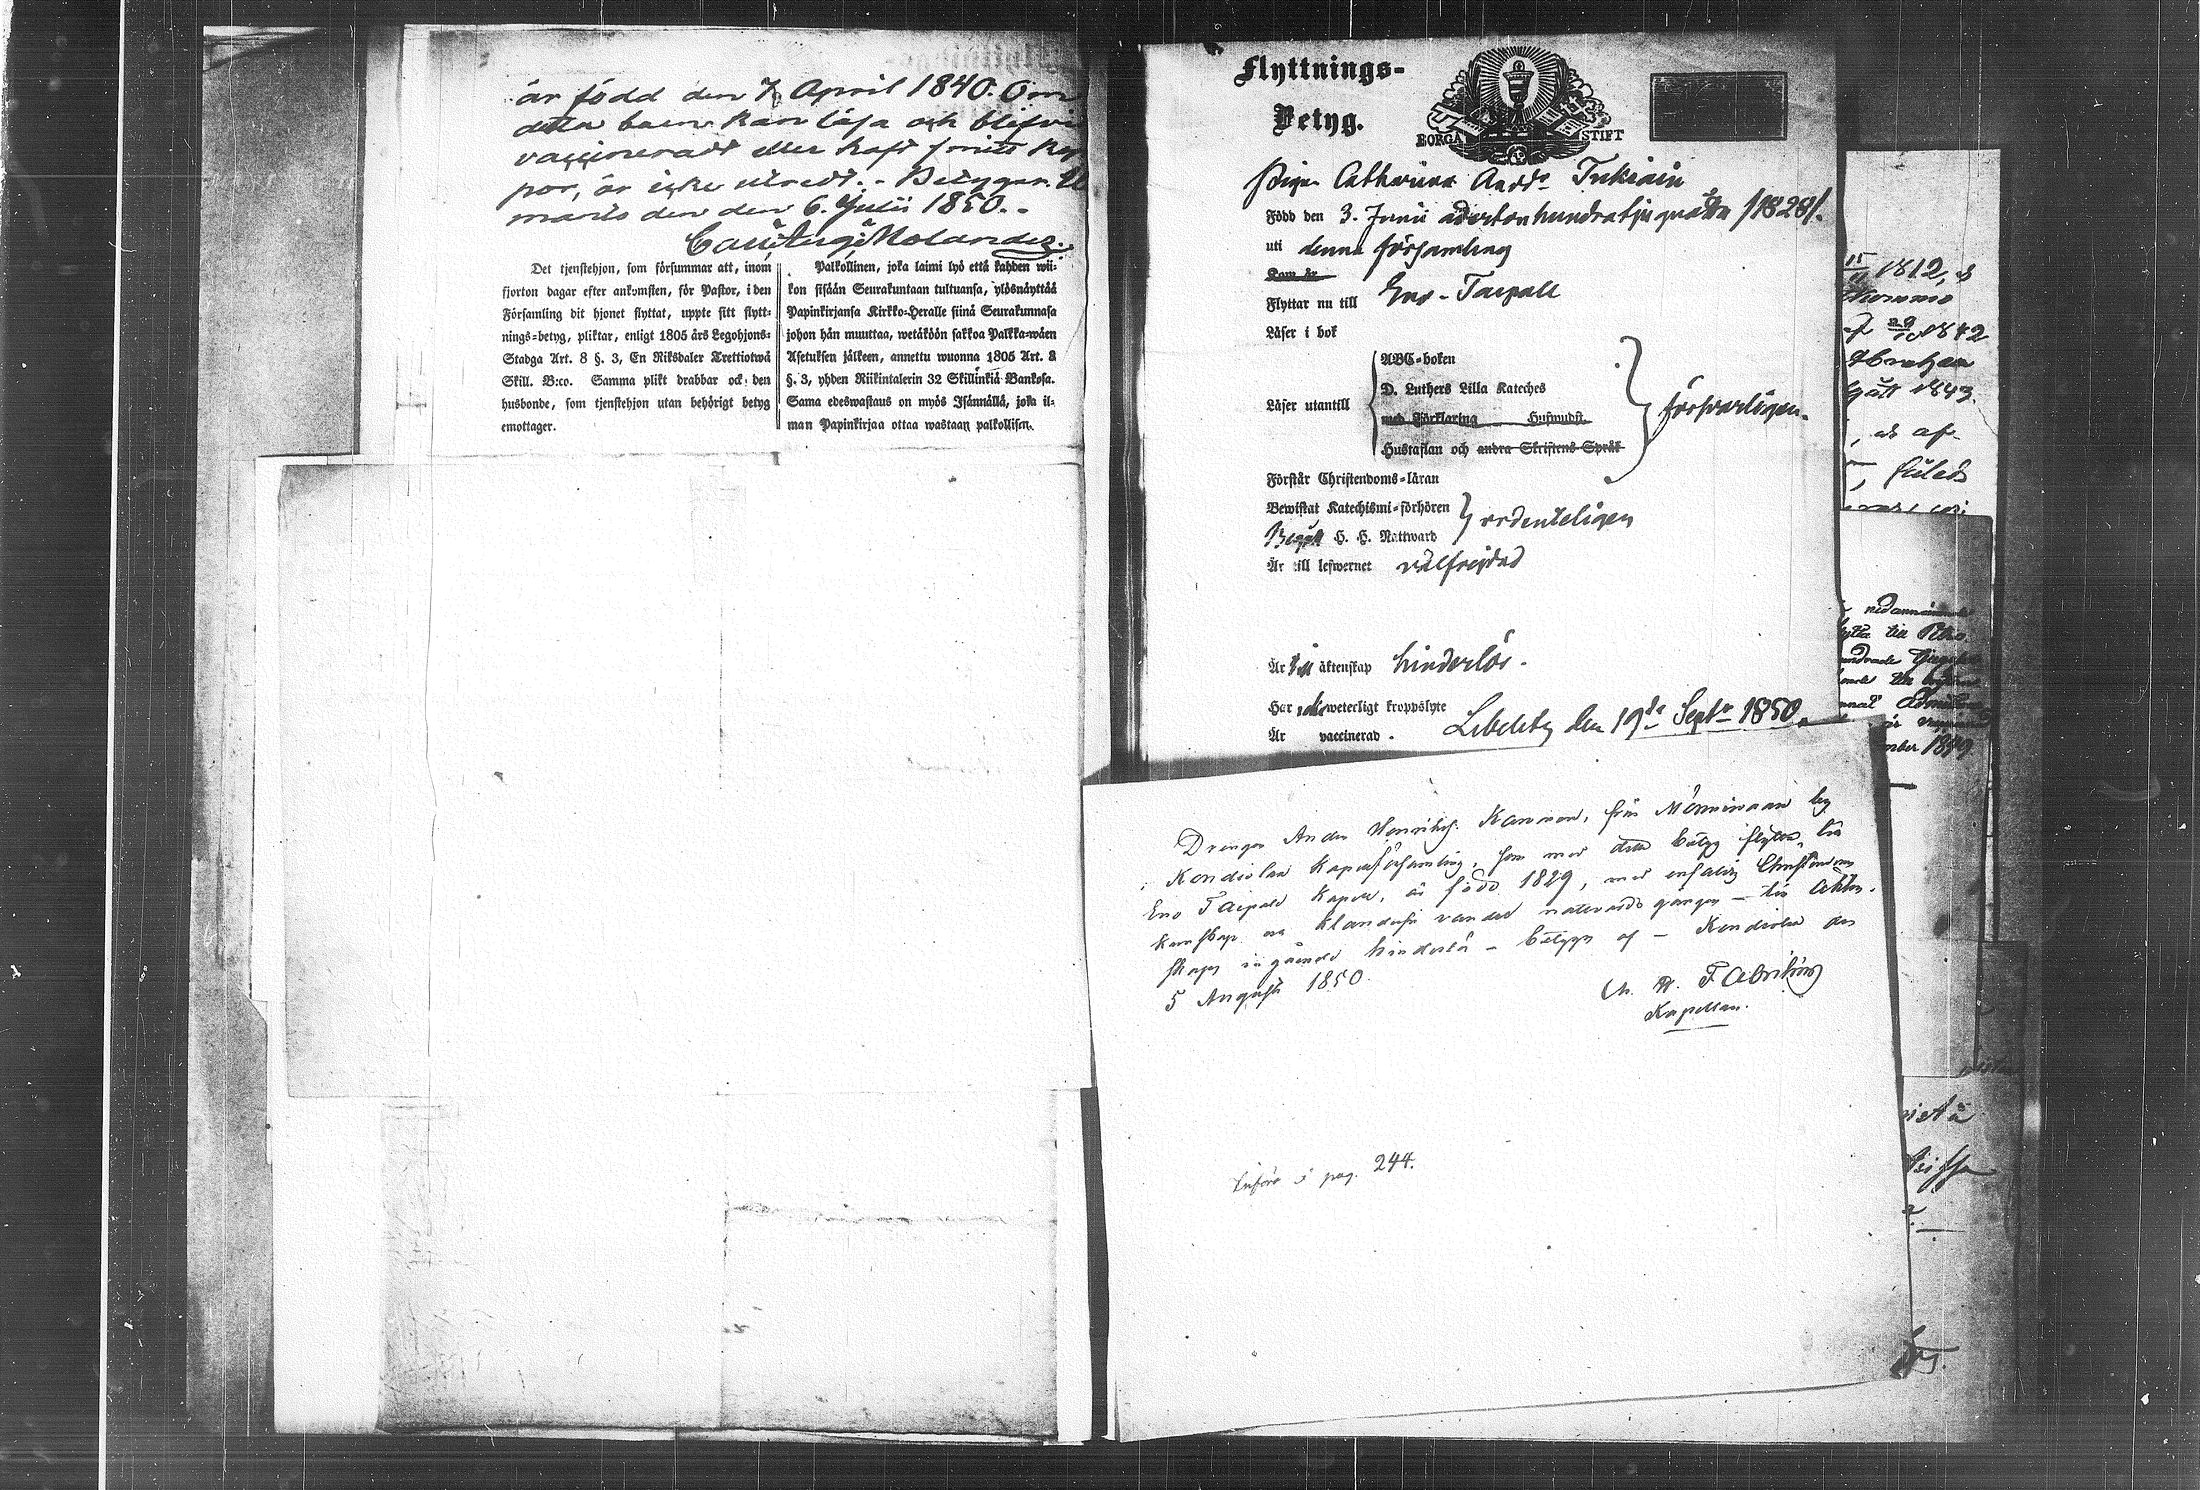 är född den 7 April 1840. Om
detta barn kan läsa och blifvi
vaccineradt eller haft
por, är icke utredt. - Betygar.
den 6. Julii 1850. -
Molander.
Det tjenstehjon, som försummar att, inom
fjorton dagar efter ankomsten, för Pastor, i den
Församling dit hjonet flyttat, uppte sitt flytt-
nings-betyg, pliktar, enligt 1805 års Legohjons-
Stadga Art. 8 §. 3, En Riksdaler Trettiotwå
Skill. B:co. Samma plikt drabbar ock den
husbonde, som tjenstehjon utan behörigt betyg
emottager.
Palkollinen, joka laimi lyö että kahden wii-
kon sisään Seurakuntaan tultuansa, ylösnäyttää
Papinkirjansa Kirkko-Heralle siinä Seurakunnasa
johon hän muuttaa, wetäköön sakkoa Palkka-wäen
Asetuksen jälkeen, annettu wuonna 1805 Art. 8
§. 3, yhden Riikintalerin 32 Skillinkiä Bankosa.
Sama edeswastaus on myös Isännällä, joka il-
man Papinkirjaa ottaa wastaan palkollisen.
Flyttnings-
Betyg.
BORGÅ STIFT
Pigan Catharina Andsr Tukiain
Född den 3. Junii adertonhundratjuguåtta /1828/.
uti denna församling
Kom är
Flyttar nu till Eno-Taipale
Läser i bok
ABC-boken
D. Luthers Lilla Kateches
Läser utantill
med Förklaring Husmodst.
Hustaflan och andra Skriftens Språk
försvarligen.
Förstår Christendoms-läran
Bewistat Katechismi-förhören
ordenteligen
Begått H. H. Nattward
Är till lefwernet välfrejdad
Är till äktenskap hinderlös.
Har icke weterligt kroppslyte
Är vaccinerad.
Libelitz den 19de Septr 1850.
Drengen Anders Henrikss. Karvonen, från Mönninvaara by
i Kondiolax Kapellförsamling, som med detta betyg flyttar till
Eno Taipale Kapell, är född 1829, med enfaldig Christendoms
kunskap och klanderfri vandel nattvards gången - till äkten-
skaps ingående hinderlös - betygar af - Kondiolax den
5 Augusti 1850.
Fabritius
Kapellan.
Införd i pag. 244.
15
1812, &
29
1842
gått 1843.
, och af
nedannämnde
flytta till
mber 1849